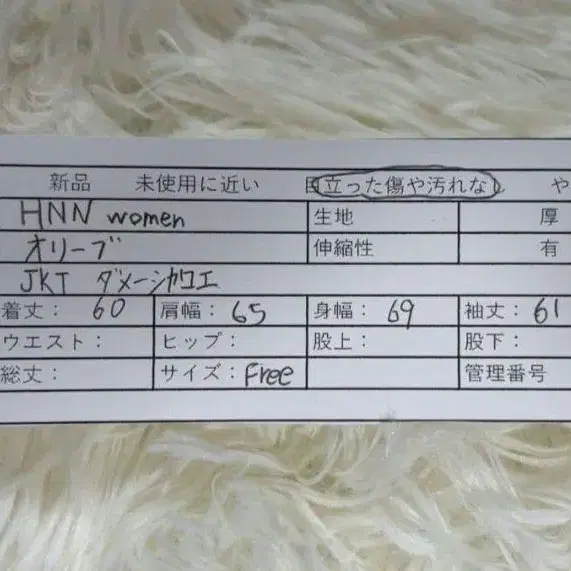 新品 未使用に近い 目立った傷や汚れなし や
HNN women 生地 厚
オリーブ 伸縮性 有
JKT ダメージカコエ
着丈: 60 肩幅: 65 身幅: 69 袖丈: 61
ウエスト: ヒップ: 股上: 股下:
総丈: サイズ: Free 管理番号